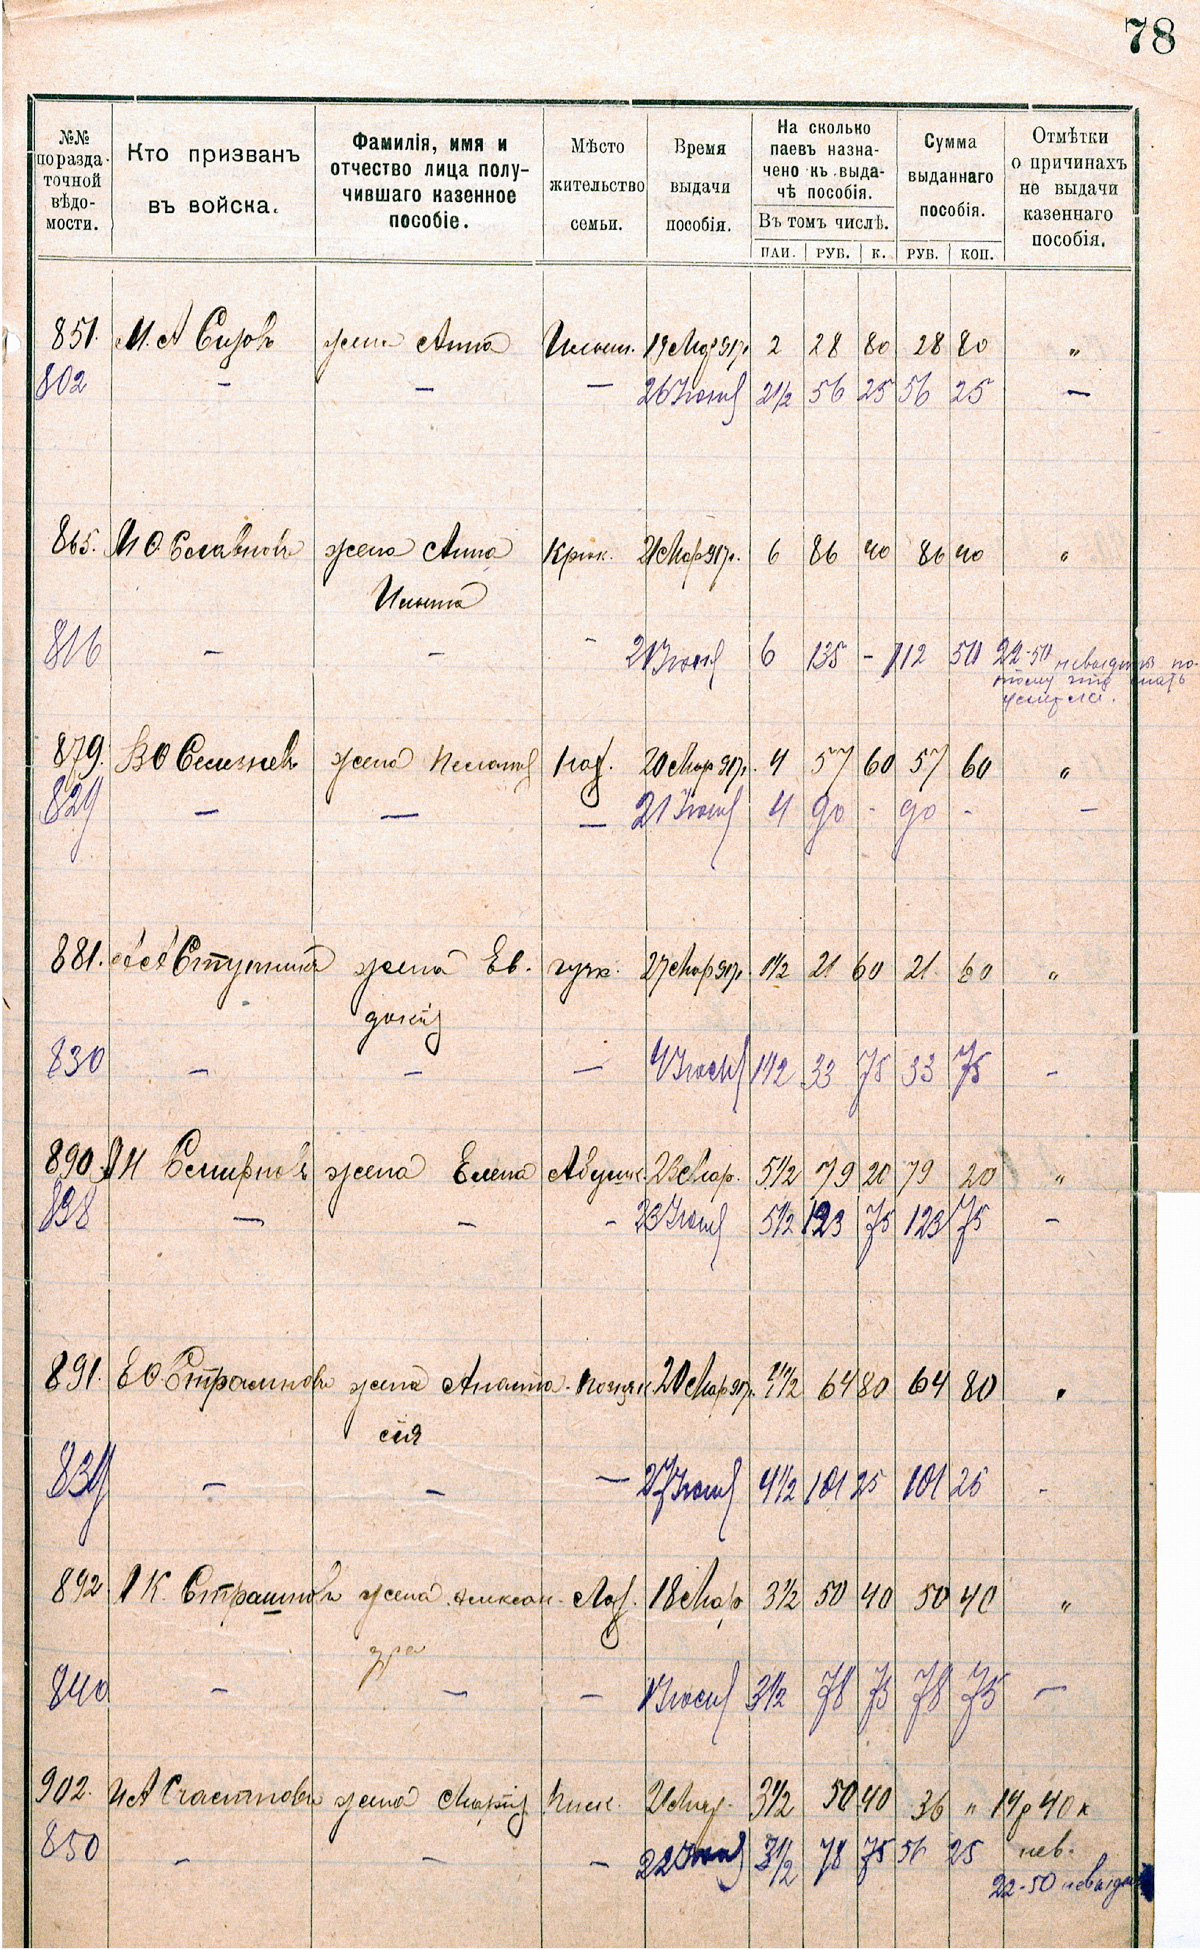 78
№№ по разда-
точной
вѣдо-
мости.
Кто призванъ
въ войска.
Фамилія, имя и
отчество лица полу-
чившаго казенное
пособіе.
Мѣсто
жительство
семьи.
Время
выдачи
пособія.
На сколько
паевъ назна-
чено къ выда-
чѣ пособія.
Въ томъ числѣ.
ПАИ. РУБ. К.
Сумма
выданнаго
пособія.
РУБ. КОП.
Отмѣтки
о причинахъ
не выдачи
казеннаго
пособія.
851. М. А Сизовъ жена Анна 19 Мар 917г. 2 28 80 28 80 "
802 — — — 26 Іюня 2 1/2 56 25 56 25 —
865. жена Анна Крюк. 21 Мар 917г. 6 86 40 86 40 "
816 — — - 21 Іюня 6 135 - 112 50 22-50 невыданъ по-
тому что мать
умерла.
879. жена 20 Мар 917г. 4 57 60 57 60 "
829 — — — 21 Іюня 4 90 - 90 - —
881. Ступинъ жена Ев. гучк. 27 Мар 917г. 1 1/2 21 60 21 60 "
докія
830 — — — Іюня 1 1/2 33 75 33 75 -
890. Н Смирновъ жена Елена 23 Мар. 5 1/2 79 20 79 20 "
838 — — - 23 Іюня 5 1/2 123 75 123 75 —
891. Страшновъ жена Анаста- 20 Мар 917г. 4 1/2 64 80 64 80 "
сія
839 — — — 27 Іюня 4 1/2 101 25 101 25 -
892 К. Страшновъ жена Алексан- Лоб. 18 Мар 3 1/2 50 40 50 40 "
дра
840 — — — Іюня 3 1/2 78 75 78 75 —
902. И А Счастновъ жена Марія Писк. 3 1/2 50 40 36 " 14р 40к
нев.
850 — — — 22 Іюня 3 1/2 78 75 56 25
22-50 невыдан